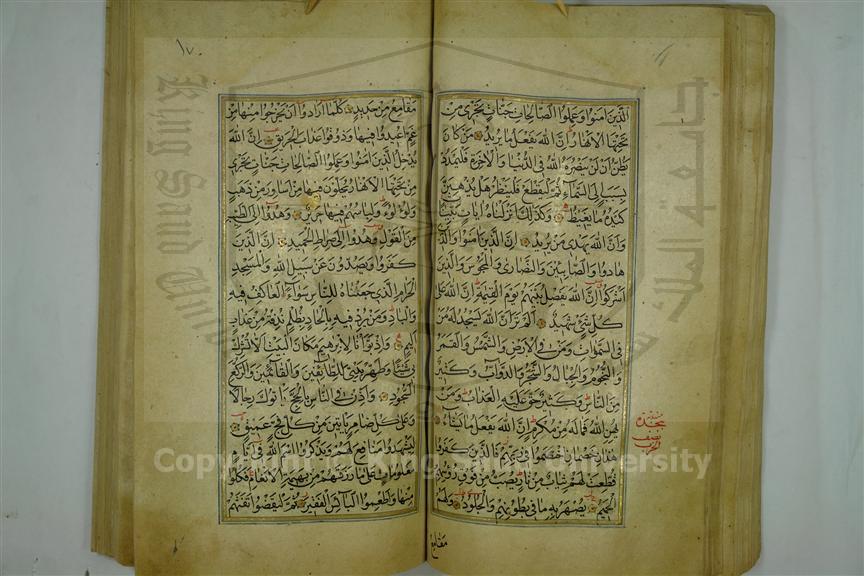 الذين امنوا وعملوا الصالحات جنات تجري من
تحتها الانهار ان الله يفعل ما يريد من كان
يظن ان لن ينصره الله في الدنيا والاخرة فليمدد
بسبب الى السماء ثم ليقطع فلينظر هل يذهبن
كيده ما يغيظ وكذلك انزلناه ايات بينات
وان الله يهدي من يريد ان الذين امنوا والذين
هادوا والصابئين والنصارى والمجوس والذين
اشركوا ان الله يفصل بينهم يوم القيمة ان الله على
كل شئ شهيد الم تر ان الله يسجد له من
في السموات ومن في الارض والشمس والقمر
والنجوم والجبال والشجر والدواب وكثير
من الناس وكثير حق عليه العذاب ومن
يهن الله فما له من مكرم ان الله يفعل ما يشاء
هذان خصمان اختصموا في ربهم فالذين كفروا
قطعت لهم ثياب من نار يصب من فوق رؤسهم
الحميم يصهر به ما في بطونهم والجلود ولهم
مقامع
سجدة
نصف
١٧
مقامع من حديد كلما ارادوا ان يخرجوا منها من
غم اعيدوا فيها وذوقوا عذاب الحريق ان الله
يدخل الذين امنوا وعملوا الصالحات جنات تجري
من تحتها الانهار يحلون فيها من اساور من ذهب
ولؤلؤا ولباسهم فيها حرير وهدوا الى الطيب
من القول وهدوا الى صراط الحميد ان الذين
كفروا ويصدون عن سبيل الله والمسجد
الحرام الذي جعلناه للناس سواء العاكف فيه
والباد ومن يرد فيه بالحاد بظلم نذقه من عذاب
اليم واذ بوأنا لابرهيم مكان البيت ان لا تشرك
بي شيئا وطهر بيتي للطائفين والقائمين والركع
السجود واذن في الناس بالحج ياتوك رجالا
وعلى كل ضامر ياتين من كل فج عميق
ليشهدوا منافع لهم ويذكروا اسم الله في ايام
معلومات على ما رزقهم من بهيمة الانعام فكلوا
منها واطعموا البائس الفقير ثم ليقضوا تفثهم
جامعة الملك
King Saud University
Copyright © King Saud University